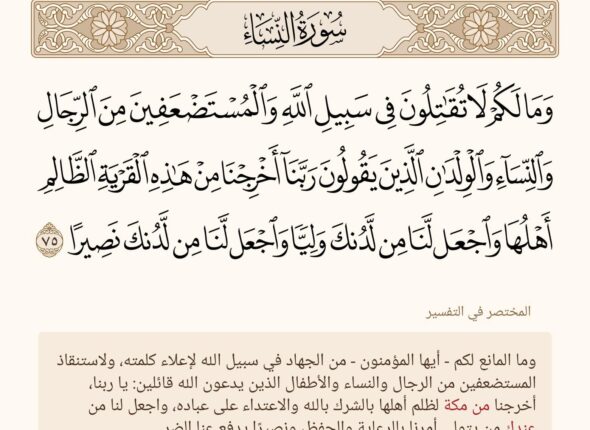 سُورَةُ النِّسَاءِ
وَمَا لَكُمْ لَا تُقَٰتِلُونَ فِي سَبِيلِ ٱللَّهِ وَٱلْمُسْتَضْعَفِينَ مِنَ ٱلرِّجَالِ
وَٱلنِّسَآءِ وَٱلْوِلْدَٰنِ ٱلَّذِينَ يَقُولُونَ رَبَّنَآ أَخْرِجْنَا مِنْ هَٰذِهِ ٱلْقَرْيَةِ ٱلظَّالِمِ
أَهْلُهَا وَٱجْعَل لَّنَا مِن لَّدُنكَ وَلِيًّا وَٱجْعَل لَّنَا مِن لَّدُنكَ نَصِيرًا ٧٥
المختصر في التفسير
وما المانع لكم - أيها المؤمنون - من الجهاد في سبيل الله لإعلاء كلمته، ولاستنقاذ
المستضعفين من الرجال والنساء والأطفال الذين يدعون الله قائلين: يا ربنا،
أخرجنا من مكة لظلم أهلها بالشرك بالله والاعتداء على عباده، واجعل لنا من
عندك من يتولى أمرنا بالرعاية والحفظ، ونصيرًا يدفع عنا الضر